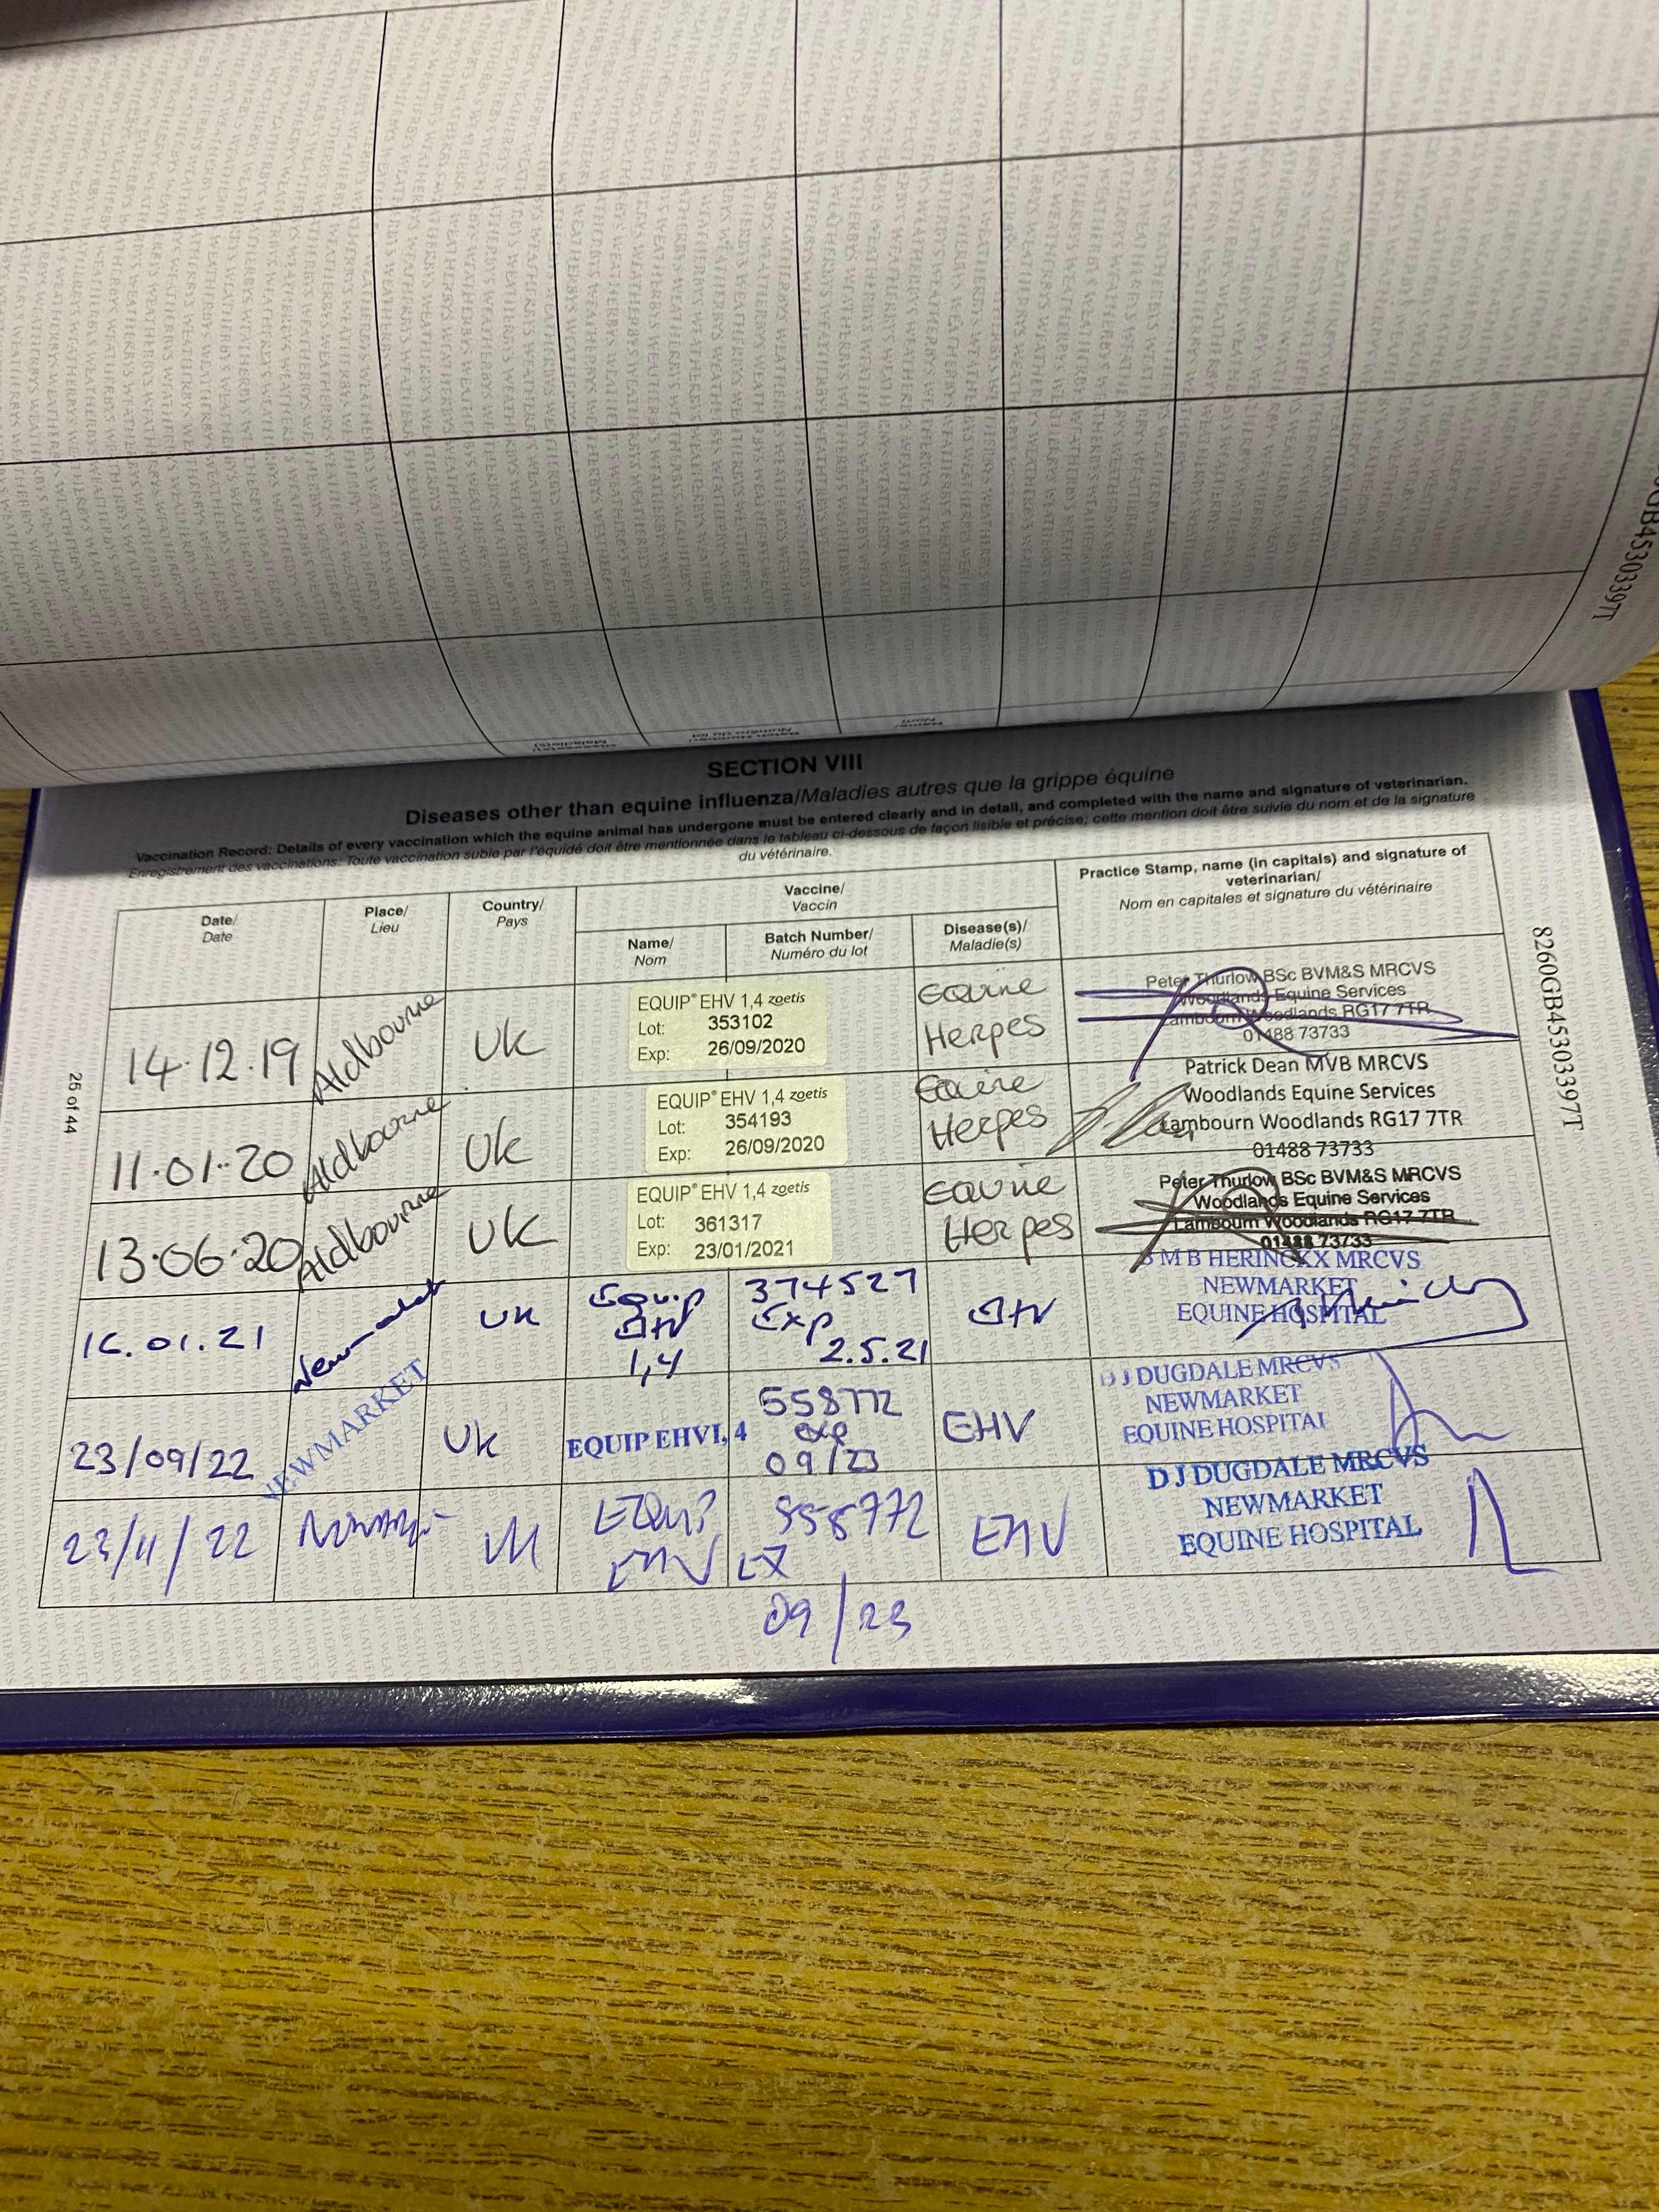 GB45303397T
Disease(s)/
Maladie(s)
Batch Number/
Numéro du lot
Name/
Nom
SECTION VIII
Diseases other than equine influenza/Maladies autres que la grippe équine
Vaccination Record: Details of every vaccination which the equine animal has undergone must be entered clearly and in detail, and completed with the name and signature of veterinarian.
Enregistrement des vaccinations: Toute vaccination subie par l'équidé doit être mentionnée dans le tableau ci-dessous de façon lisible et précise; cette mention doit être suivie du nom et de la signature
du vétérinaire.
Date/
Date
Place/
Lieu
Country/
Pays
Vaccine/
Vaccin
Name/
Nom
Batch Number/
Numéro du lot
Disease(s)/
Maladie(s)
Practice Stamp, name (in capitals) and signature of
veterinarian/
Nom en capitales et signature du vétérinaire
14.12.19
Aldbourne
UK
EQUIP® EHV 1,4 zoetis
Lot: 353102
Exp: 26/09/2020
Equine
Herpes
Peter Thurlow BSc BVM&S MRCVS
Woodlands Equine Services
Lambourn Woodlands RG17 7TR
01488 73733
11.01.20
Aldbourne
UK
EQUIP® EHV 1,4 zoetis
Lot: 354193
Exp: 26/09/2020
Equine
Herpes
Patrick Dean MVB MRCVS
Woodlands Equine Services
Lambourn Woodlands RG17 7TR
01488 73733
13.06.20
Aldbourne
UK
EQUIP® EHV 1,4 zoetis
Lot: 361317
Exp: 23/01/2021
Equine
Herpes
Peter Thurlow BSc BVM&S MRCVS
Woodlands Equine Services
Lambourn Woodlands RG17 7TR
01488 73733
16.01.21
Newmarket
UK
Equip
EHV
1,4
374527
Exp
2.5.21
EHV
M B HERINCKX MRCVS
NEWMARKET
EQUINE HOSPITAL
23/09/22
NEWMARKET
UK
EQUIP EHV1, 4
558772
exp
09/23
EHV
D J DUGDALE MRCVS
NEWMARKET
EQUINE HOSPITAL
23/11/22
Newmarket
UK
EQUIP
EHV
558772
EX
09/23
EHV
D J DUGDALE MRCVS
NEWMARKET
EQUINE HOSPITAL
25 of 44
8260GB45303397T